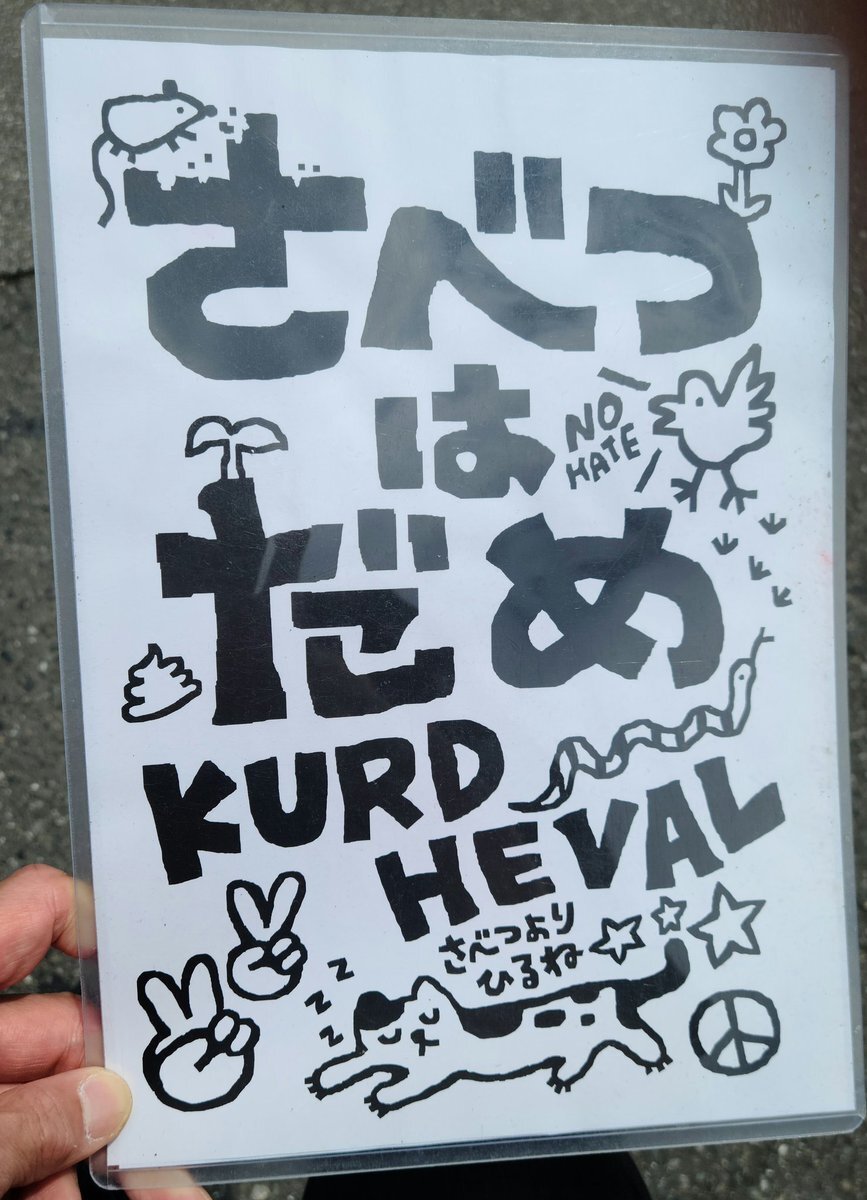 さべつ
は
NO
HATE
だめ
KURD
HEVAL
さべつより
ひるね
z z z z